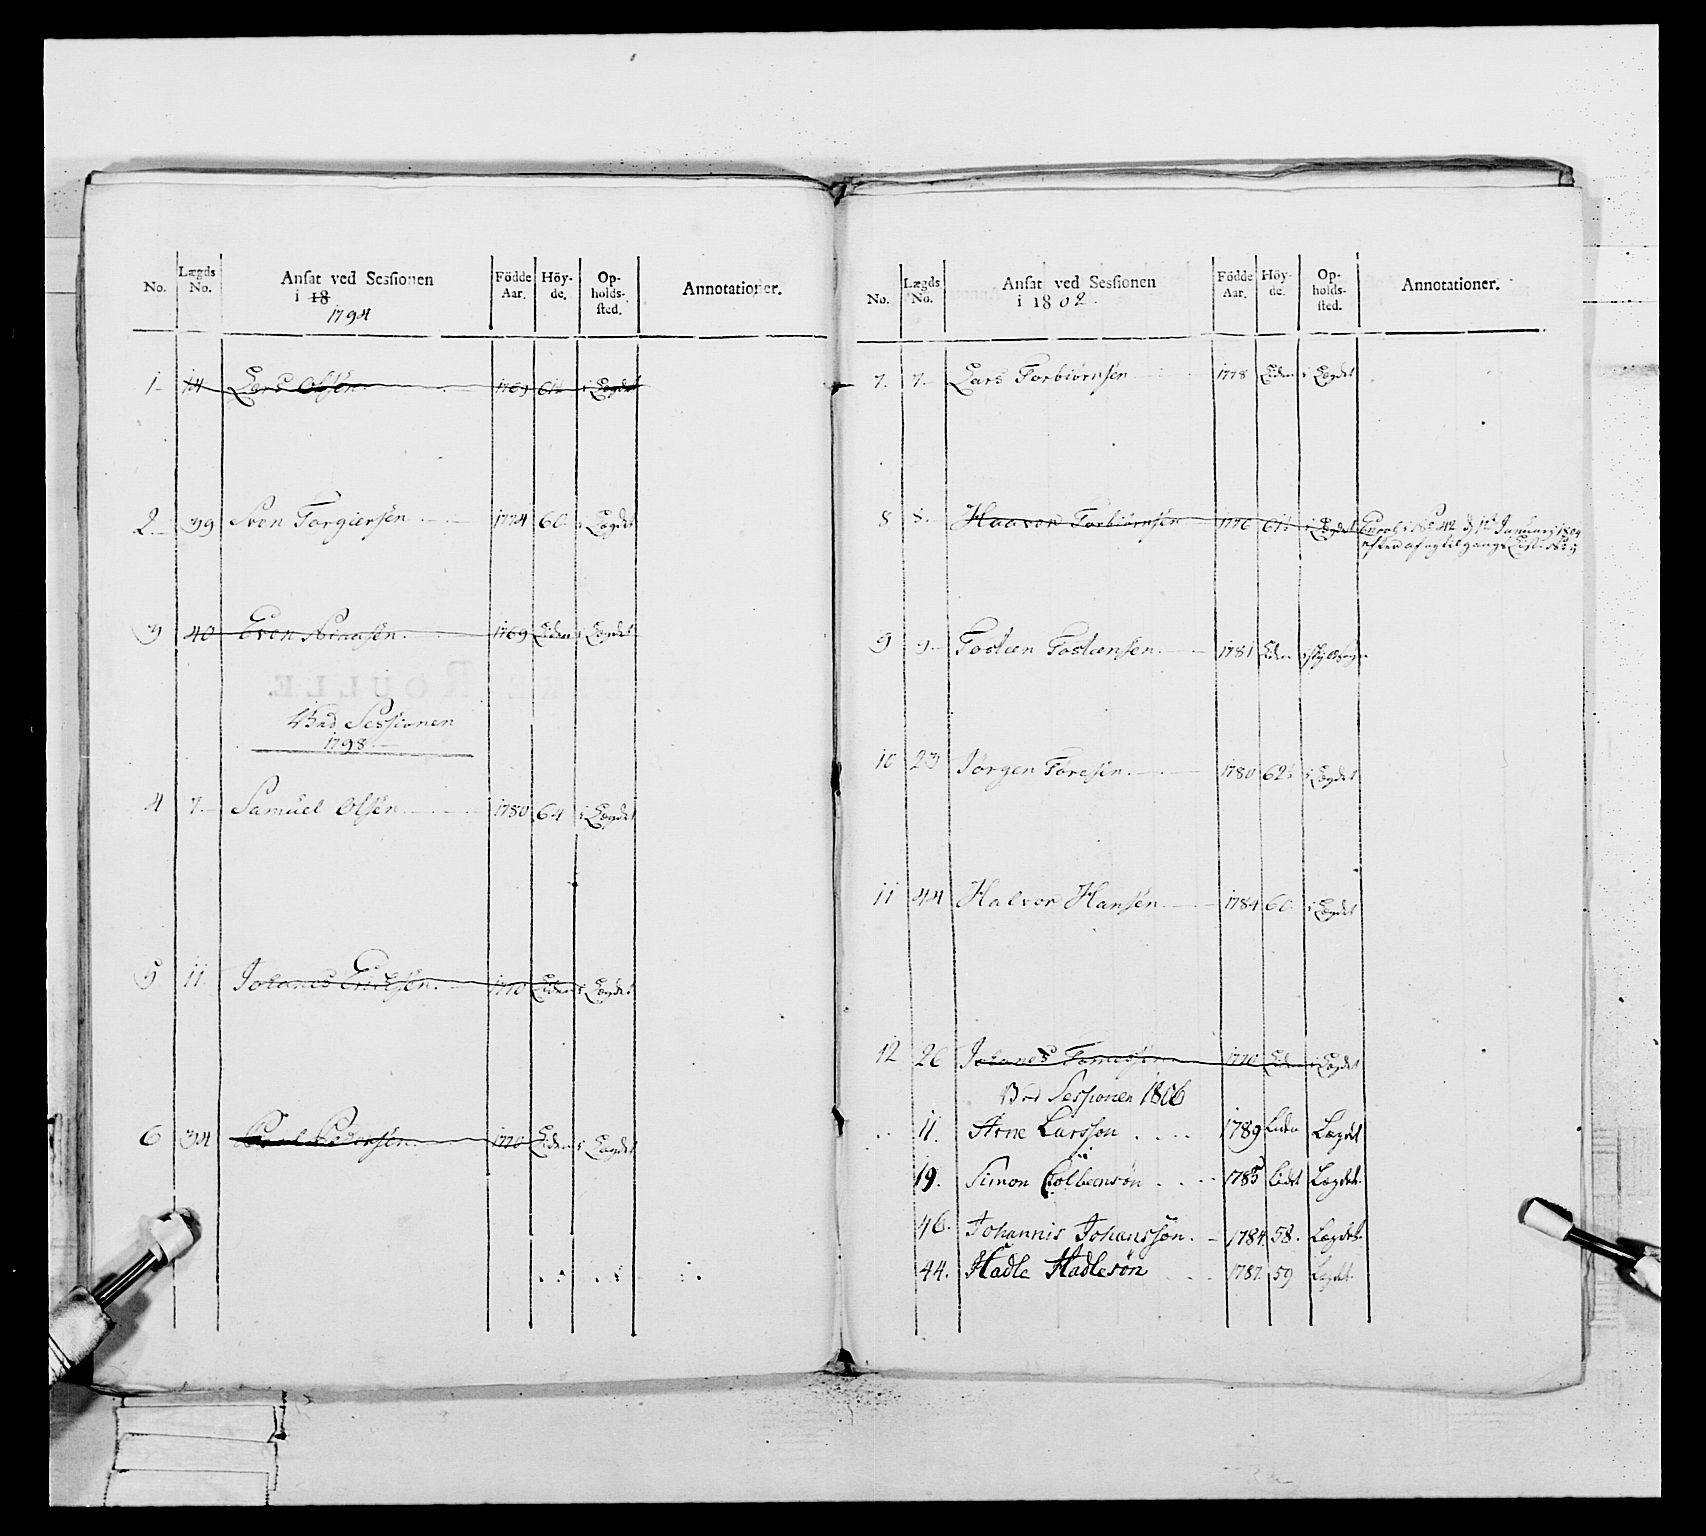 No. Lægds No. Ansat ved Sessionen i 18 1794 Födde Aar. Höy-de. Op-holds-sted. Annotationer.
1 14 Lars Olsen 1769 61½ i Lægdet
2 39 Sven Torgiersen 1774 60 i Lægdet
3 40 Even 1769 Liden i Lægdet
Ved Sessionen
1798
4 7 Samuel Olsen 1780 64 i Lægdet
5 11 Johanes Erichsen 1770 Liden i Lægdet
6 34 Pedersen 1770 Liden i Lægdet
No. Lægds No. Ansat ved Sessionen i 1802. Födde Aar. Höy-de. Op-holds-sted. Annotationer.
7. 7. Lars Torbiørnsen 1778 Liden i Lægdet
8 8. Haavor Torbiørnsen 1776 61½ i Lægdet Januarij 1804
efter af og tilgangs Liste
9 9 Tosten Tostensen 1781 Liden
10 23 Jørgen Toresen 1780 62½ i Lægdet
11 44 Halvor Hansen 1784 60 i Lægdet
12 26 Johanes 1770 Liden i Lægdet
Ved Sessionen 1806
11. Arne Larsson 1789 Lægdet
19. Simon 1785 Lidet Lægdet
46. Johannis Johanssøn. 1784. 58. Lægdet
44. Hadle Hadlesøn 1787. 59 Lægdet